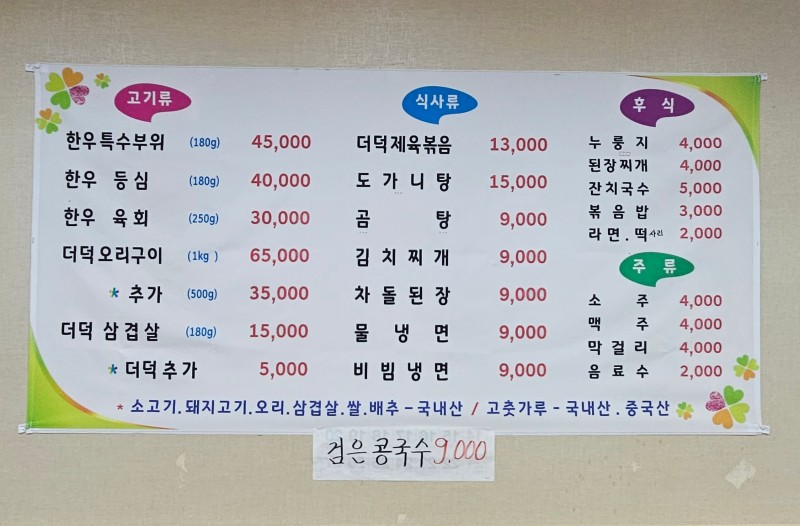 고기류
한우특수부위 (180g) 45,000
한우 등심 (180g) 40,000
한우 육회 (250g) 30,000
더덕오리구이 (1kg ) 65,000
* 추가 (500g) 35,000
더덕 삼겹살 (180g) 15,000
* 더덕추가 5,000
식사류
더덕제육볶음 13,000
도가니탕 15,000
곰 탕 9,000
김치찌개 9,000
차돌된장 9,000
물 냉 면 9,000
비빔냉면 9,000
후 식
누룽지 4,000
된장찌개 4,000
잔치국수 5,000
볶음밥 3,000
라면.떡사리 2,000
주 류
소 주 4,000
맥 주 4,000
막걸리 4,000
음료수 2,000
* 소고기.돼지고기.오리.삼겹살.쌀.배추 - 국내산 / 고춧가루 - 국내산.중국산
검은콩국수 9.000